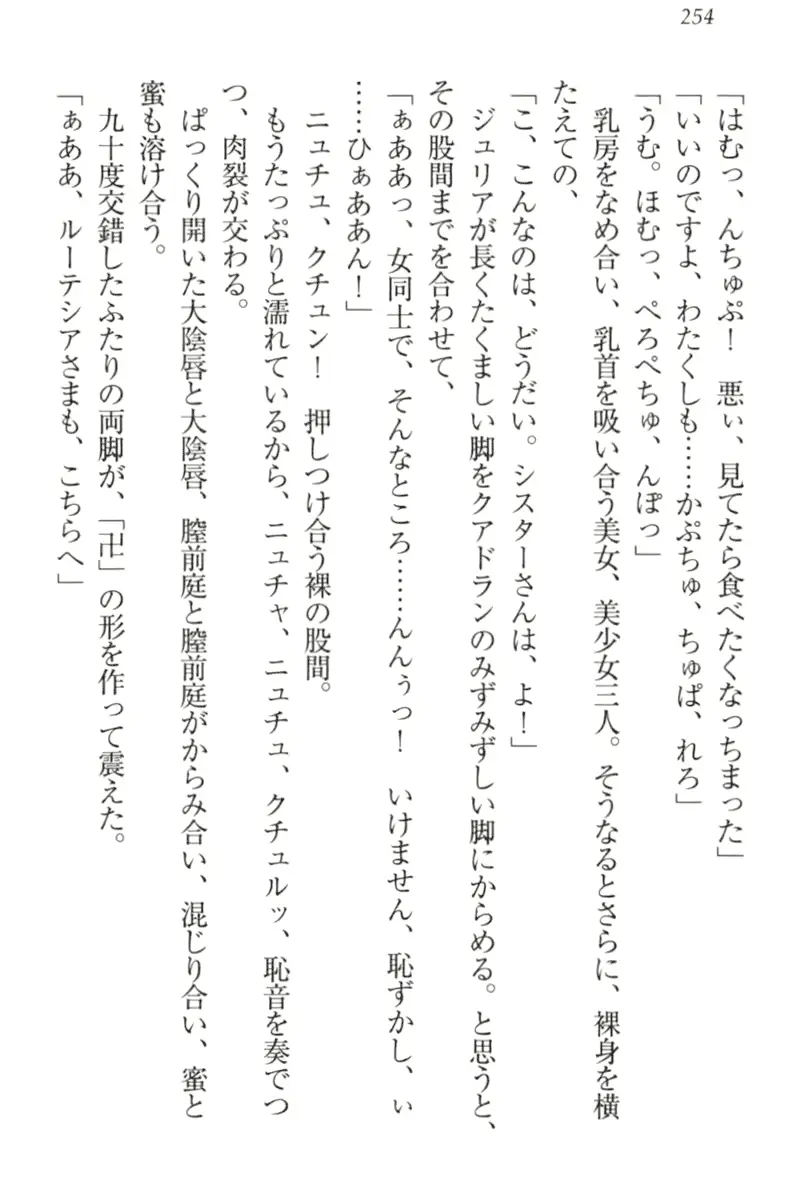 254
「はむっ、んちゅぷ！　悪ぃ、見てたら食べたくなっちまった」
「いいのですよ、わたくしも……かぷちゅ、ちゅぱ、れろ」
「うむ。ほむっ、ぺろぺちゅ、んぽっ」
　乳房をなめ合い、乳首を吸い合う美女、美少女三人。そうなるとさらに、裸身を横
たえての、
「こ、こんなのは、どうだい。シスターさんは、よ！」
　ジュリアが長くたくましい脚をクアドランのみずみずしい脚にからめる。と思うと、
その股間までを合わせて、
「ぁああっ、女同士で、そんなところ……んんぅっ！　いけません、恥ずかし、ぃ
……ひぁああん！」
　ニュチュ、クチュン！　押しつけ合う裸の股間。
　もうたっぷりと濡れているから、ニュチャ、ニュチュ、クチュルッ、恥音を奏でつ
つ、肉裂が交わる。
　ぱっくり開いた大陰唇と大陰唇、膣前庭と膣前庭がからみ合い、混じり合い、蜜と
蜜も溶け合う。
　九十度交錯したふたりの両脚が、「卍」の形を作って震えた。
「ぁああ、ルーテシアさまも、こちらへ」